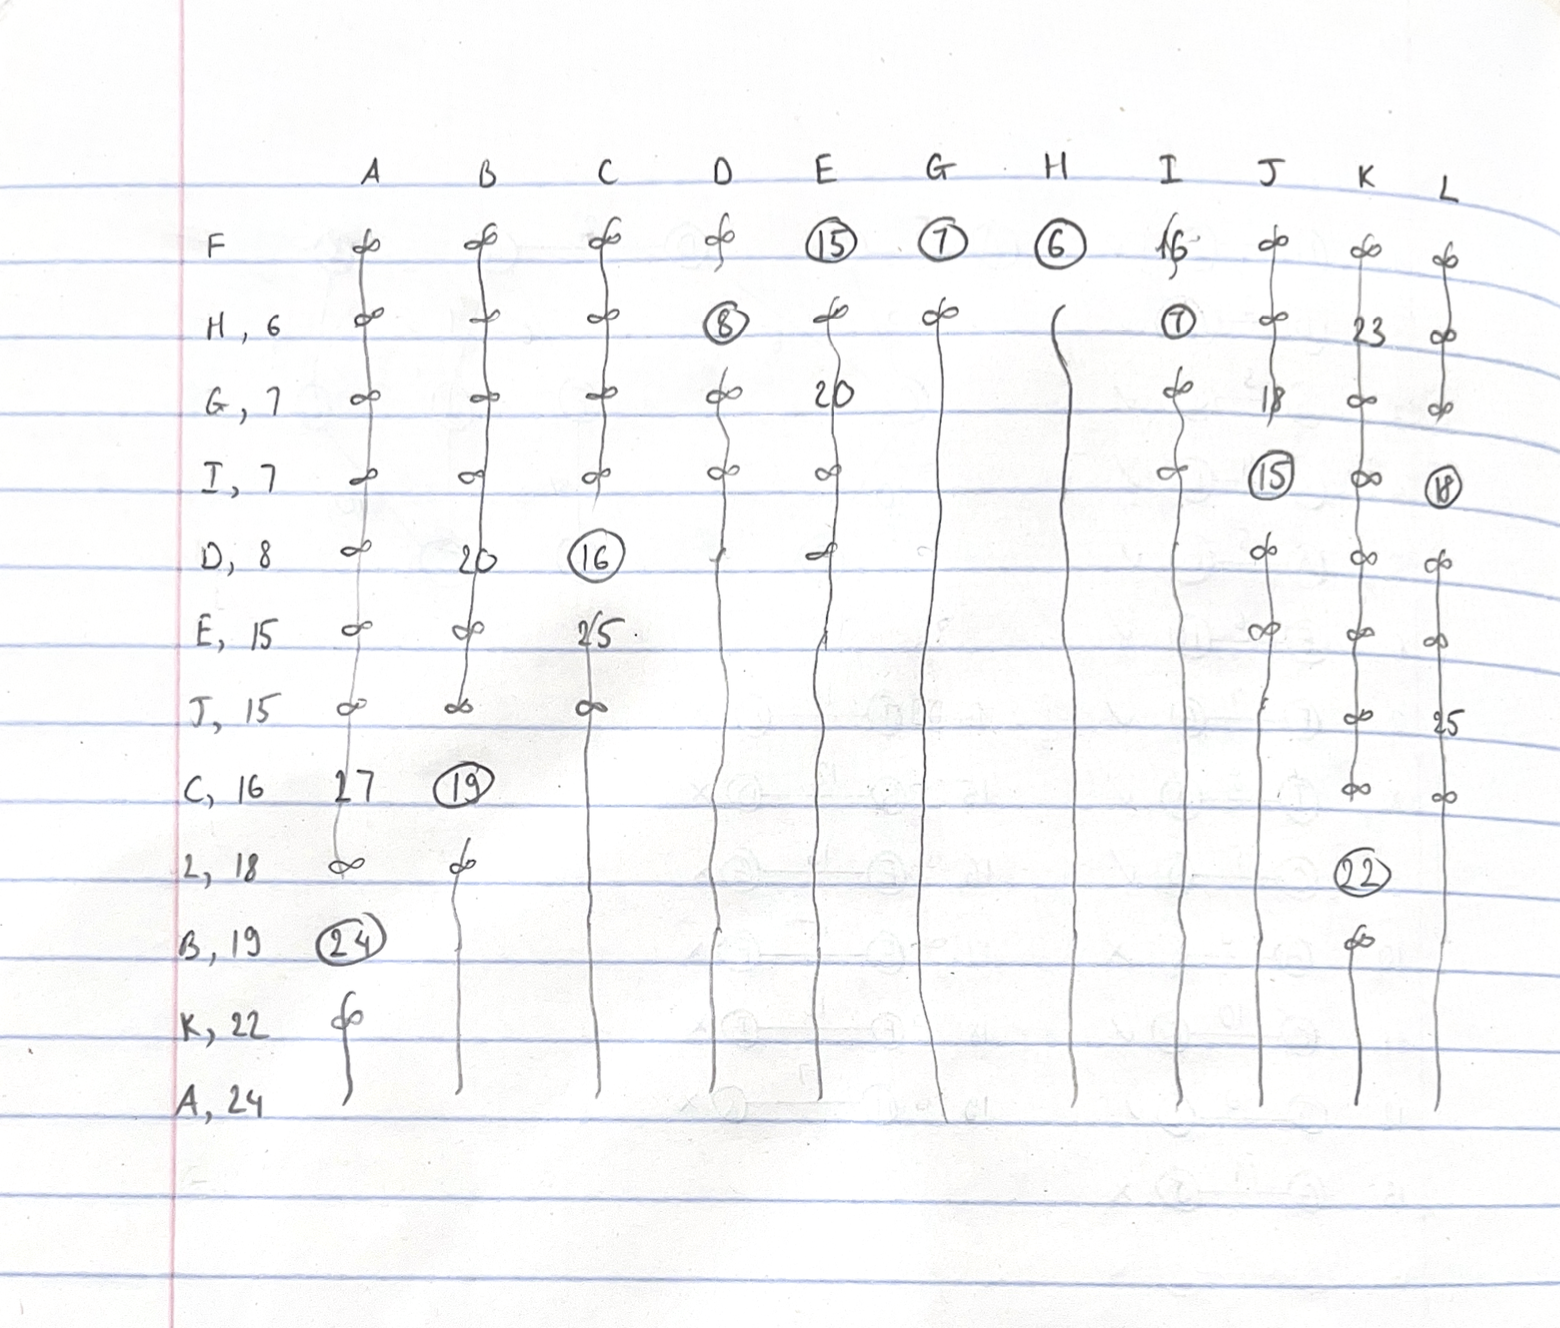 A B C D E G H I J K L
F ∞ ∞ ∞ ∞ 15 7 6 16 ∞ ∞ ∞
H, 6 ∞ ∞ ∞ 8 ∞ ∞ 7 ∞ 23 ∞
G, 7 ∞ ∞ ∞ ∞ 20 ∞ 18 ∞ ∞
I, 7 ∞ ∞ ∞ ∞ ∞ ∞ 15 ∞ 18
D, 8 ∞ 20 16 ∞ ∞ ∞ ∞
E, 15 ∞ ∞ 25 ∞ ∞ ∞
J, 15 ∞ ∞ ∞ ∞ 25
C, 16 27 19 ∞ ∞
L, 18 ∞ ∞ 22
B, 19 24 ∞
K, 22 ∞
A, 24